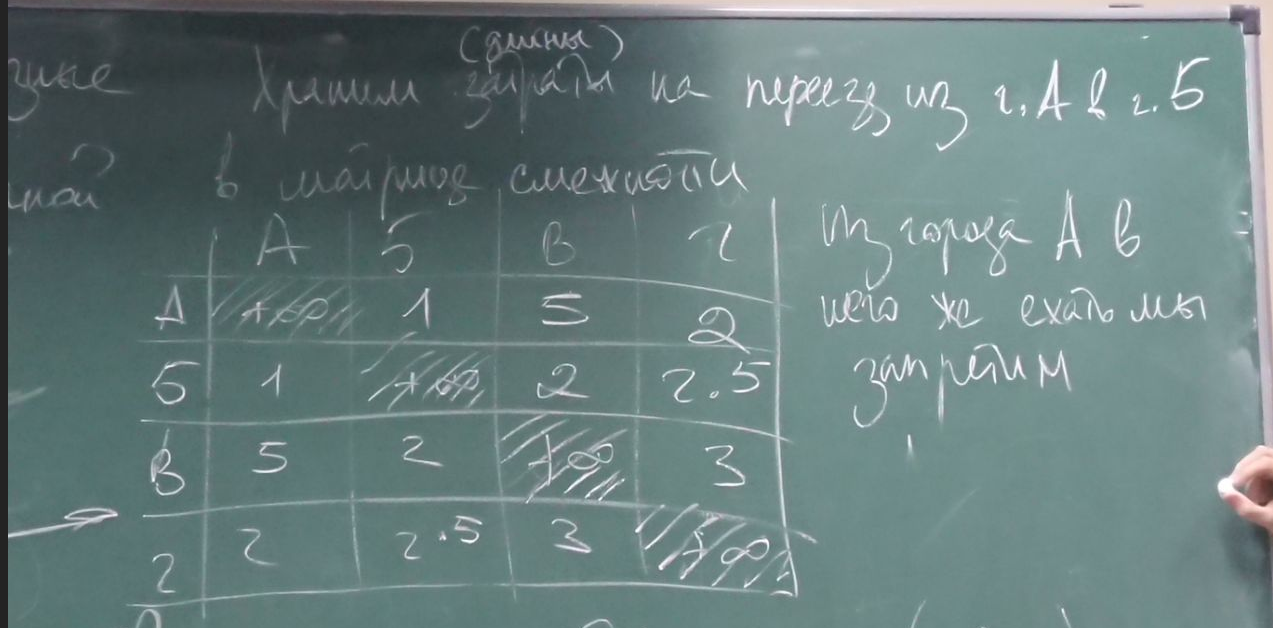 (длины)
Храним затраты на переезд из г. А в г. Б
в матрице смежности
А Б В Г
А +∞ 1 5 2
Б 1 +∞ 2 2.5
В 5 2 +∞ 3
Г 2 2.5 3 +∞
Из города А в
него же ехать мы
запретим